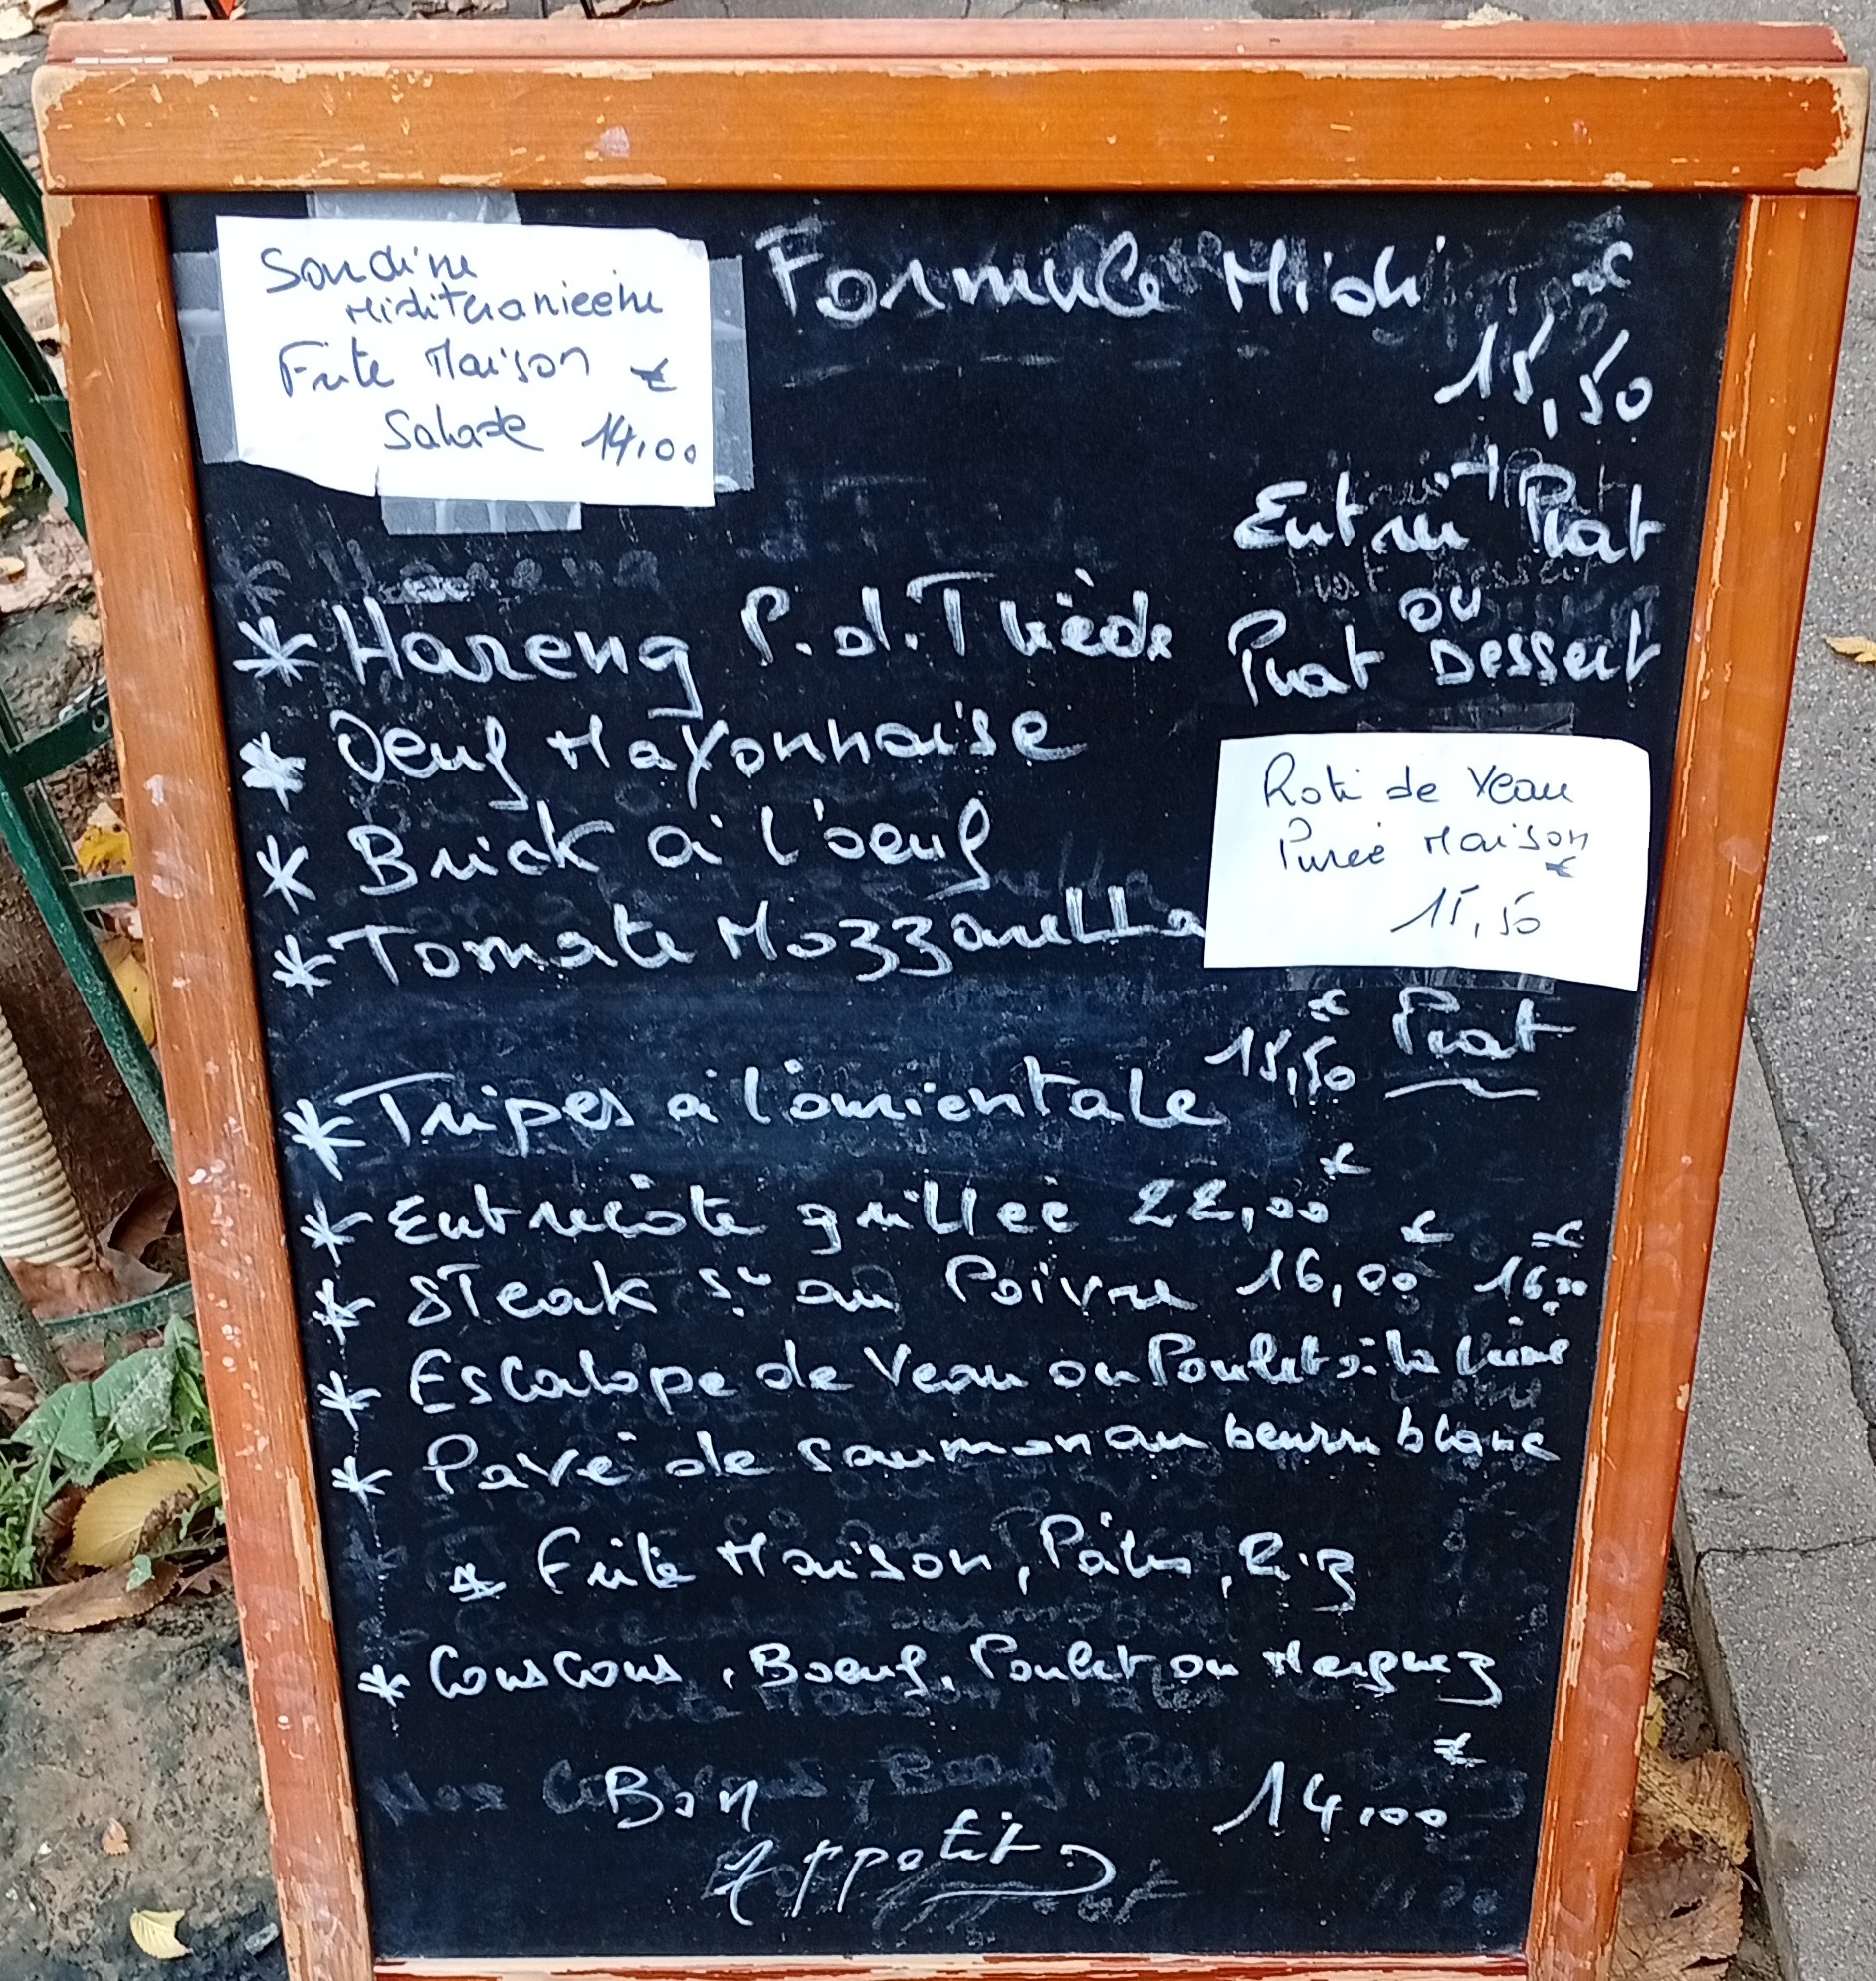 Sardine
Méditeranieene
Frite Maison €
Salade 14,00
Formule Midi €
15,50
Entrée Plat
ou
Plat Dessert
* Hareng P.d.T tiède
* Oeuf Mayonnaise
* Brick à l'oeuf
* Tomate Mozzarella
Roti de Veau
Purée Maison €
15,50
Plat
* Tripes à l'orientale 15,50 €
* Entrecôte grillée 22,00 €
* Steak S. au Poivre 16,00 € 16,00 €
* Escalope de Veau ou Poulet à la crème
* Pavé de saumon au beurre blanc
* Frite Maison, Pâtes, Riz
* Couscous, Boeuf, Poulet ou Merguez
Bon 14,00 €
Appetit